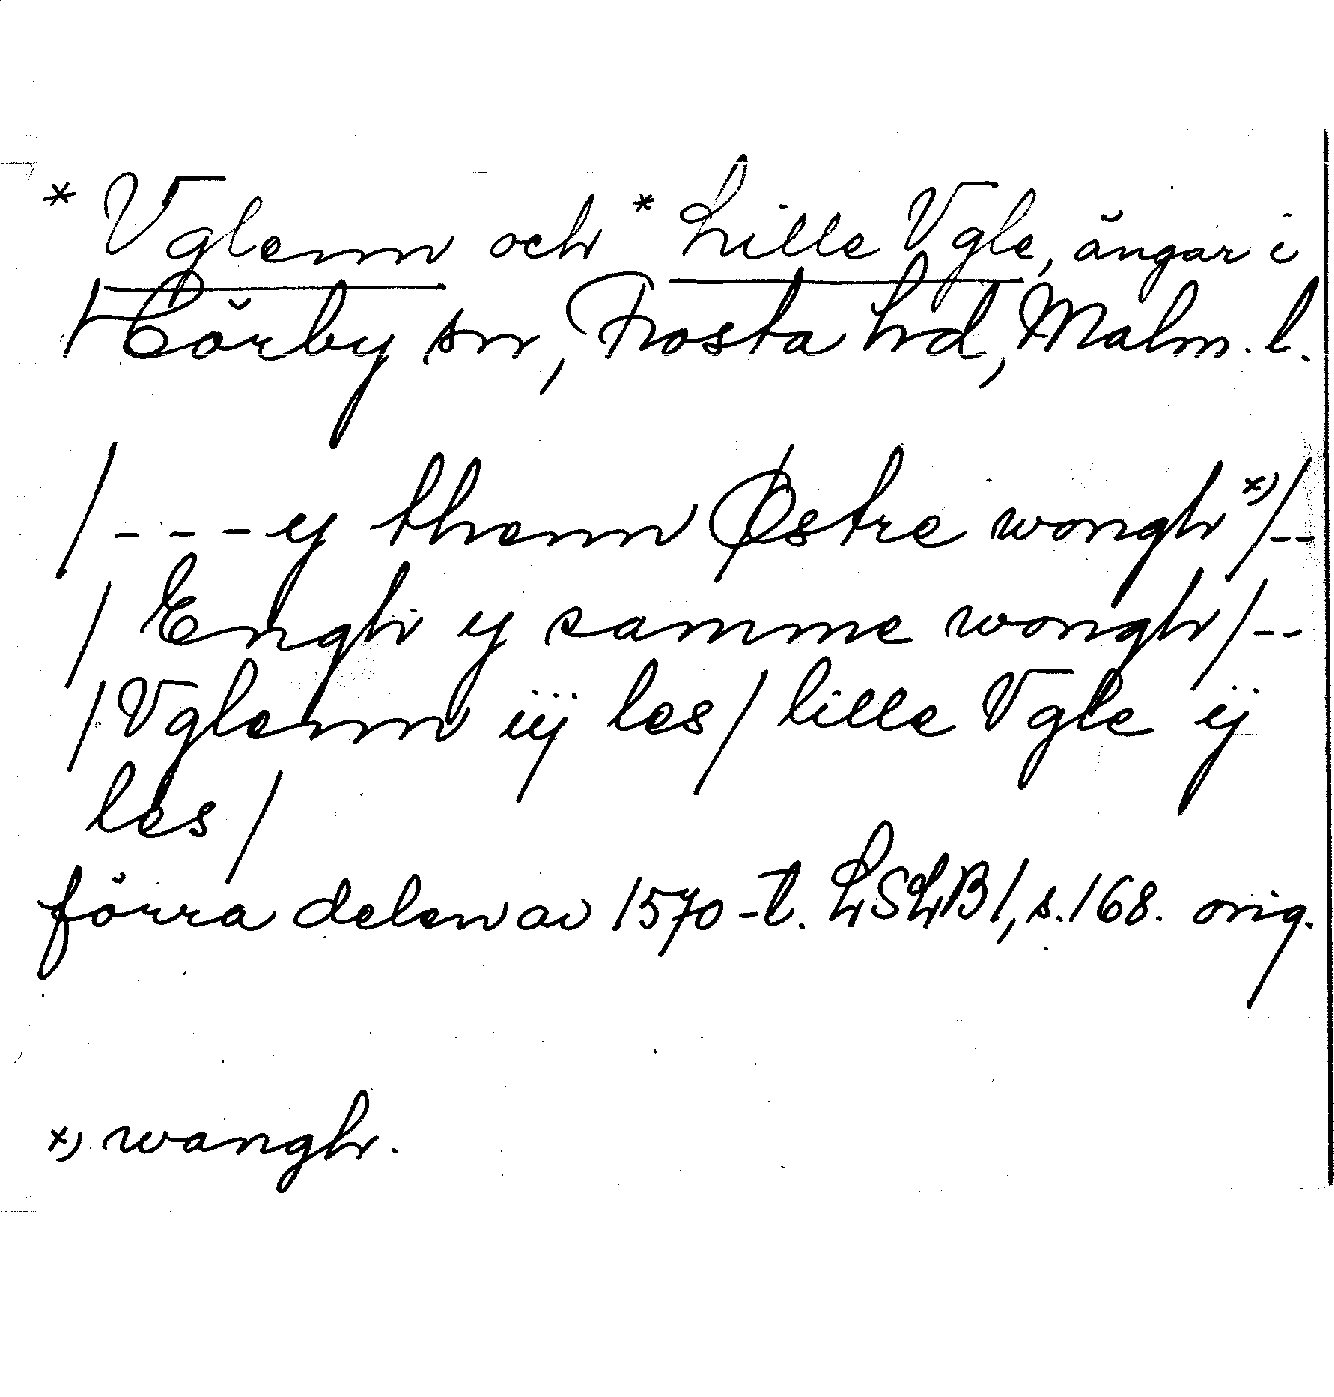 * Vglenn och * Lille Vgle, ängar i
Hörby sn, Frosta hd, Malm. l.
/ - - - y thenn Østre wongh *) / - -
/ Engh y samme wongh / - -
/ Vglenn iij les / lille Vgle ij
les /
förra delen av 1570-t. LSLB 1, s. 168. orig.
*) wangh.